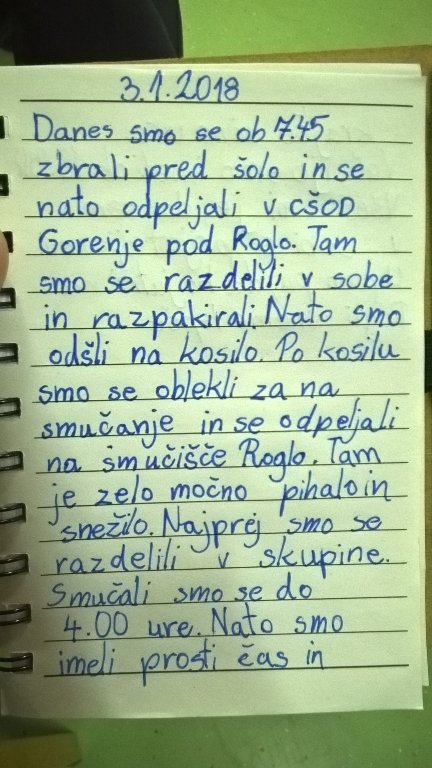 3.1.2018
Danes smo se ob 7.45
zbrali pred šolo in se
nato odpeljali v CŠOD
Gorenje pod Roglo. Tam
smo se razdelili v sobe
in razpakirali. Nato smo
odšli na kosilo. Po kosilu
smo se oblekli za na
smučanje in se odpeljali
na smučišče Roglo. Tam
je zelo močno pihalo in
snežilo. Najprej smo se
razdelili v skupine.
Smučali smo se do
4.00 ure. Nato smo
imeli prosti čas in